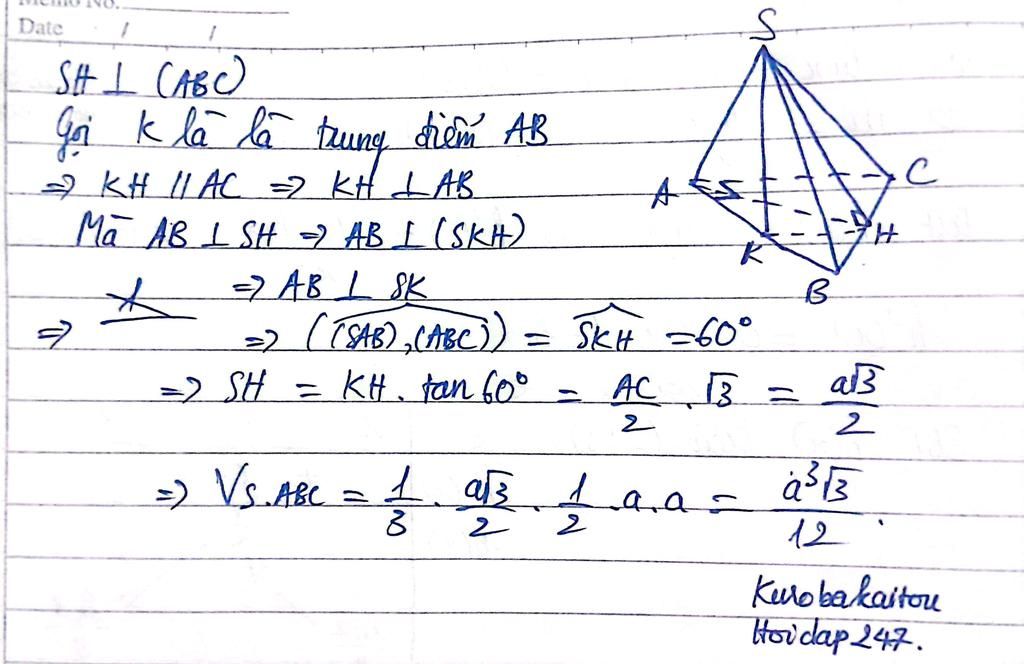 Memo No.
Date / /
SH ⊥ (ABC)
Gọi K là là trung điểm AB
⇒ KH // AC ⇒ KH ⊥ AB
Mà AB ⊥ SH ⇒ AB ⊥ (SKH)
⇒ AB ⊥ SK
⇒ ⇒ ((SAB),(ABC)) = SKH = 60°
⇒ SH = KH . tan 60° = AC/2 . √3 = a√3/2
⇒ VS.ABC = 1/3 . a√3/2 . 1/2 .a.a = a³√3/12 .
Kurobakaitou
Hoidap247.
S
A
C
K
H
B